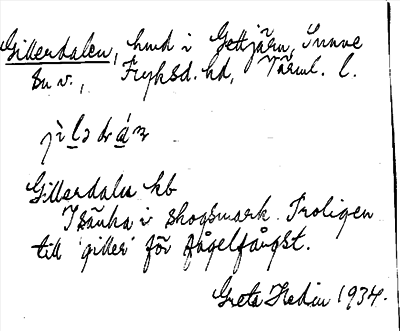 Gillerdalen, hmd i Gettjärn, Sunne
sn v., Fryksd. hd, Värml. l.
Gillerdaln hb
I sänka i skogsmark. Troligen
till 'giller' för fågelfångst.
Greta Hedin 1934.